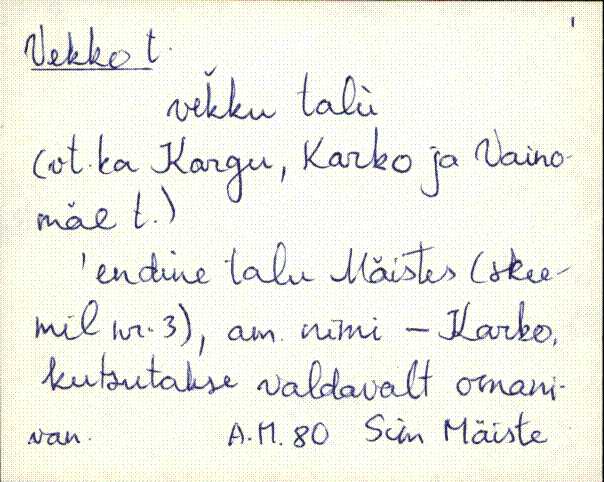 1
Vekko t.
veǩku talù
(vt. ka Kargu, Karko ja Vaino-
mäe t.)
'endine talu Mäistes (skee-
mil nr. 3), am. nimi – Karko,
kutsutakse valdavalt omani-
van. A.M. 80 Siin Mäiste